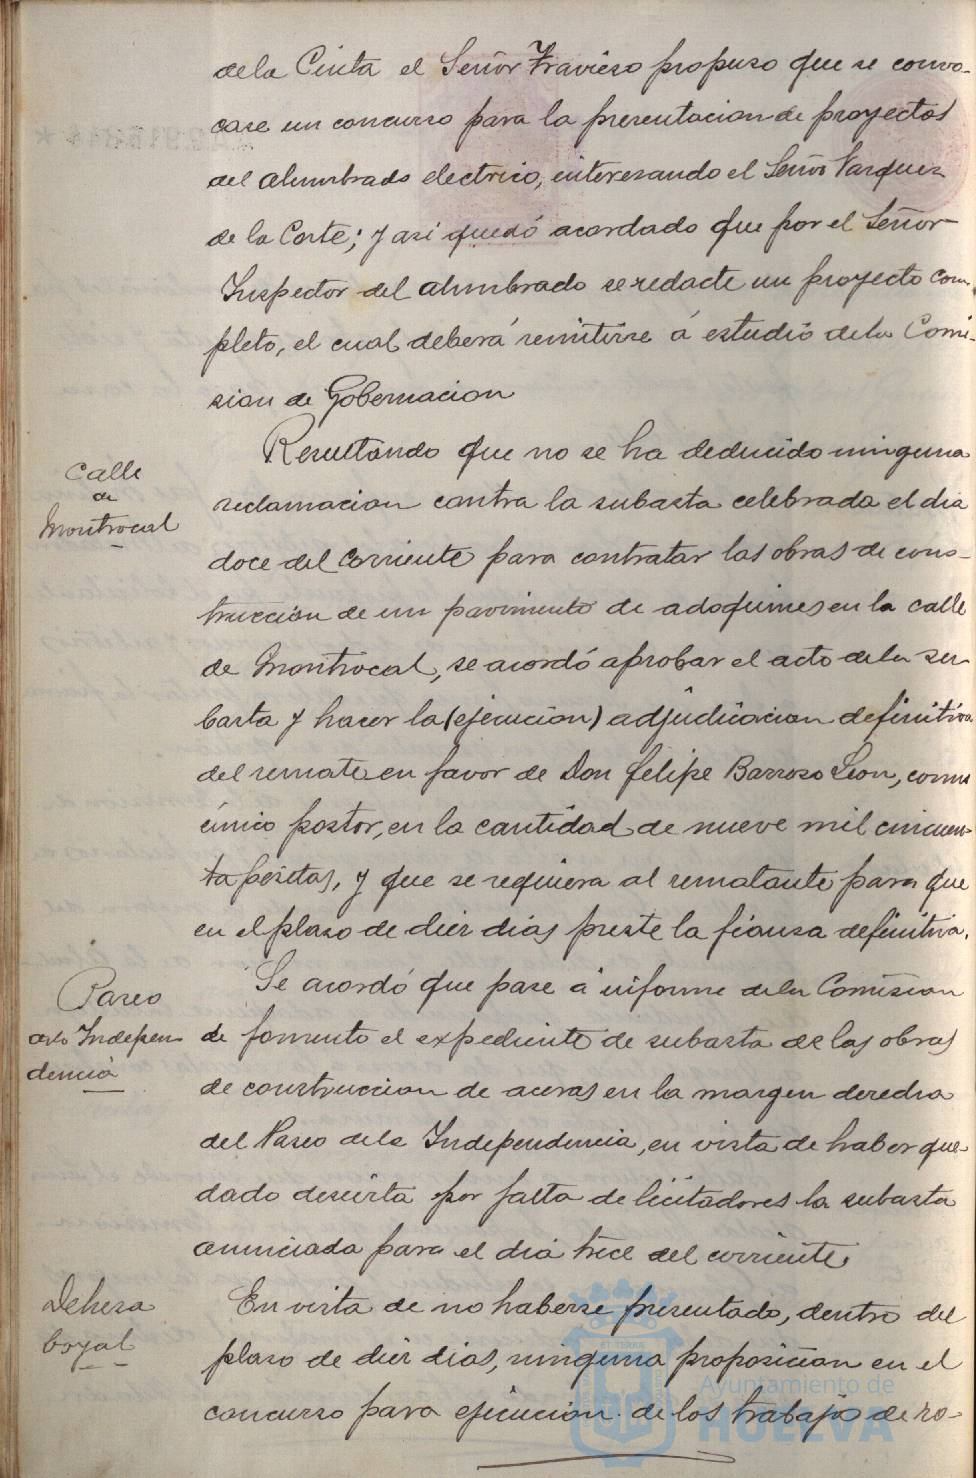 dela Cinta el Señor Travieso propuso que se convo-
case un concurso para la presentacion de proyectos
del alumbrado electrico, interesando el Señor Vazquez
de la Corte; y asi quedó acordado que por el Señor
Inspector del alumbrado se redacte un proyecto com-
pleto, el cual deberá remitirse á estudio dela Comi-
sion de Gobernacion
Calle
de
Montrocal
Resultando que no se ha deducido ninguna
reclamacion contra la subasta celebrada el dia
doce del corriente para contratar las obras de cons-
truccion de un pavimento de adoquines en la calle
de Montrocal, se acordó aprobar el acto dela su-
basta y hacer la (ejecucion) adjudicacion definitiva
del remate en favor de Don Felipe Barroso Leon, como
único postor, en la cantidad de nueve mil cincuen-
ta pesetas, y que se requiera al rematante para que
en el plaso de diez dias preste la fiansa definitiva.
Paseo
dela Indepen
dencia
Se acordó que pase á informe dela Comision
de fomento el expediente de subasta de las obras
de construccion de aceras en la margen derecha
del Paseo dela Independencia, en vista de haber que-
dado desierta por falta de licitadores la subasta
anunciada para el dia trece del corriente
Dehesa
boyal
En vista de no haberse presentado, dentro del
plaso de diez dias, ninguna proposicion en el
concurso para ejecucion de los trabajos de ro-
Ayuntamiento de
HUELVA